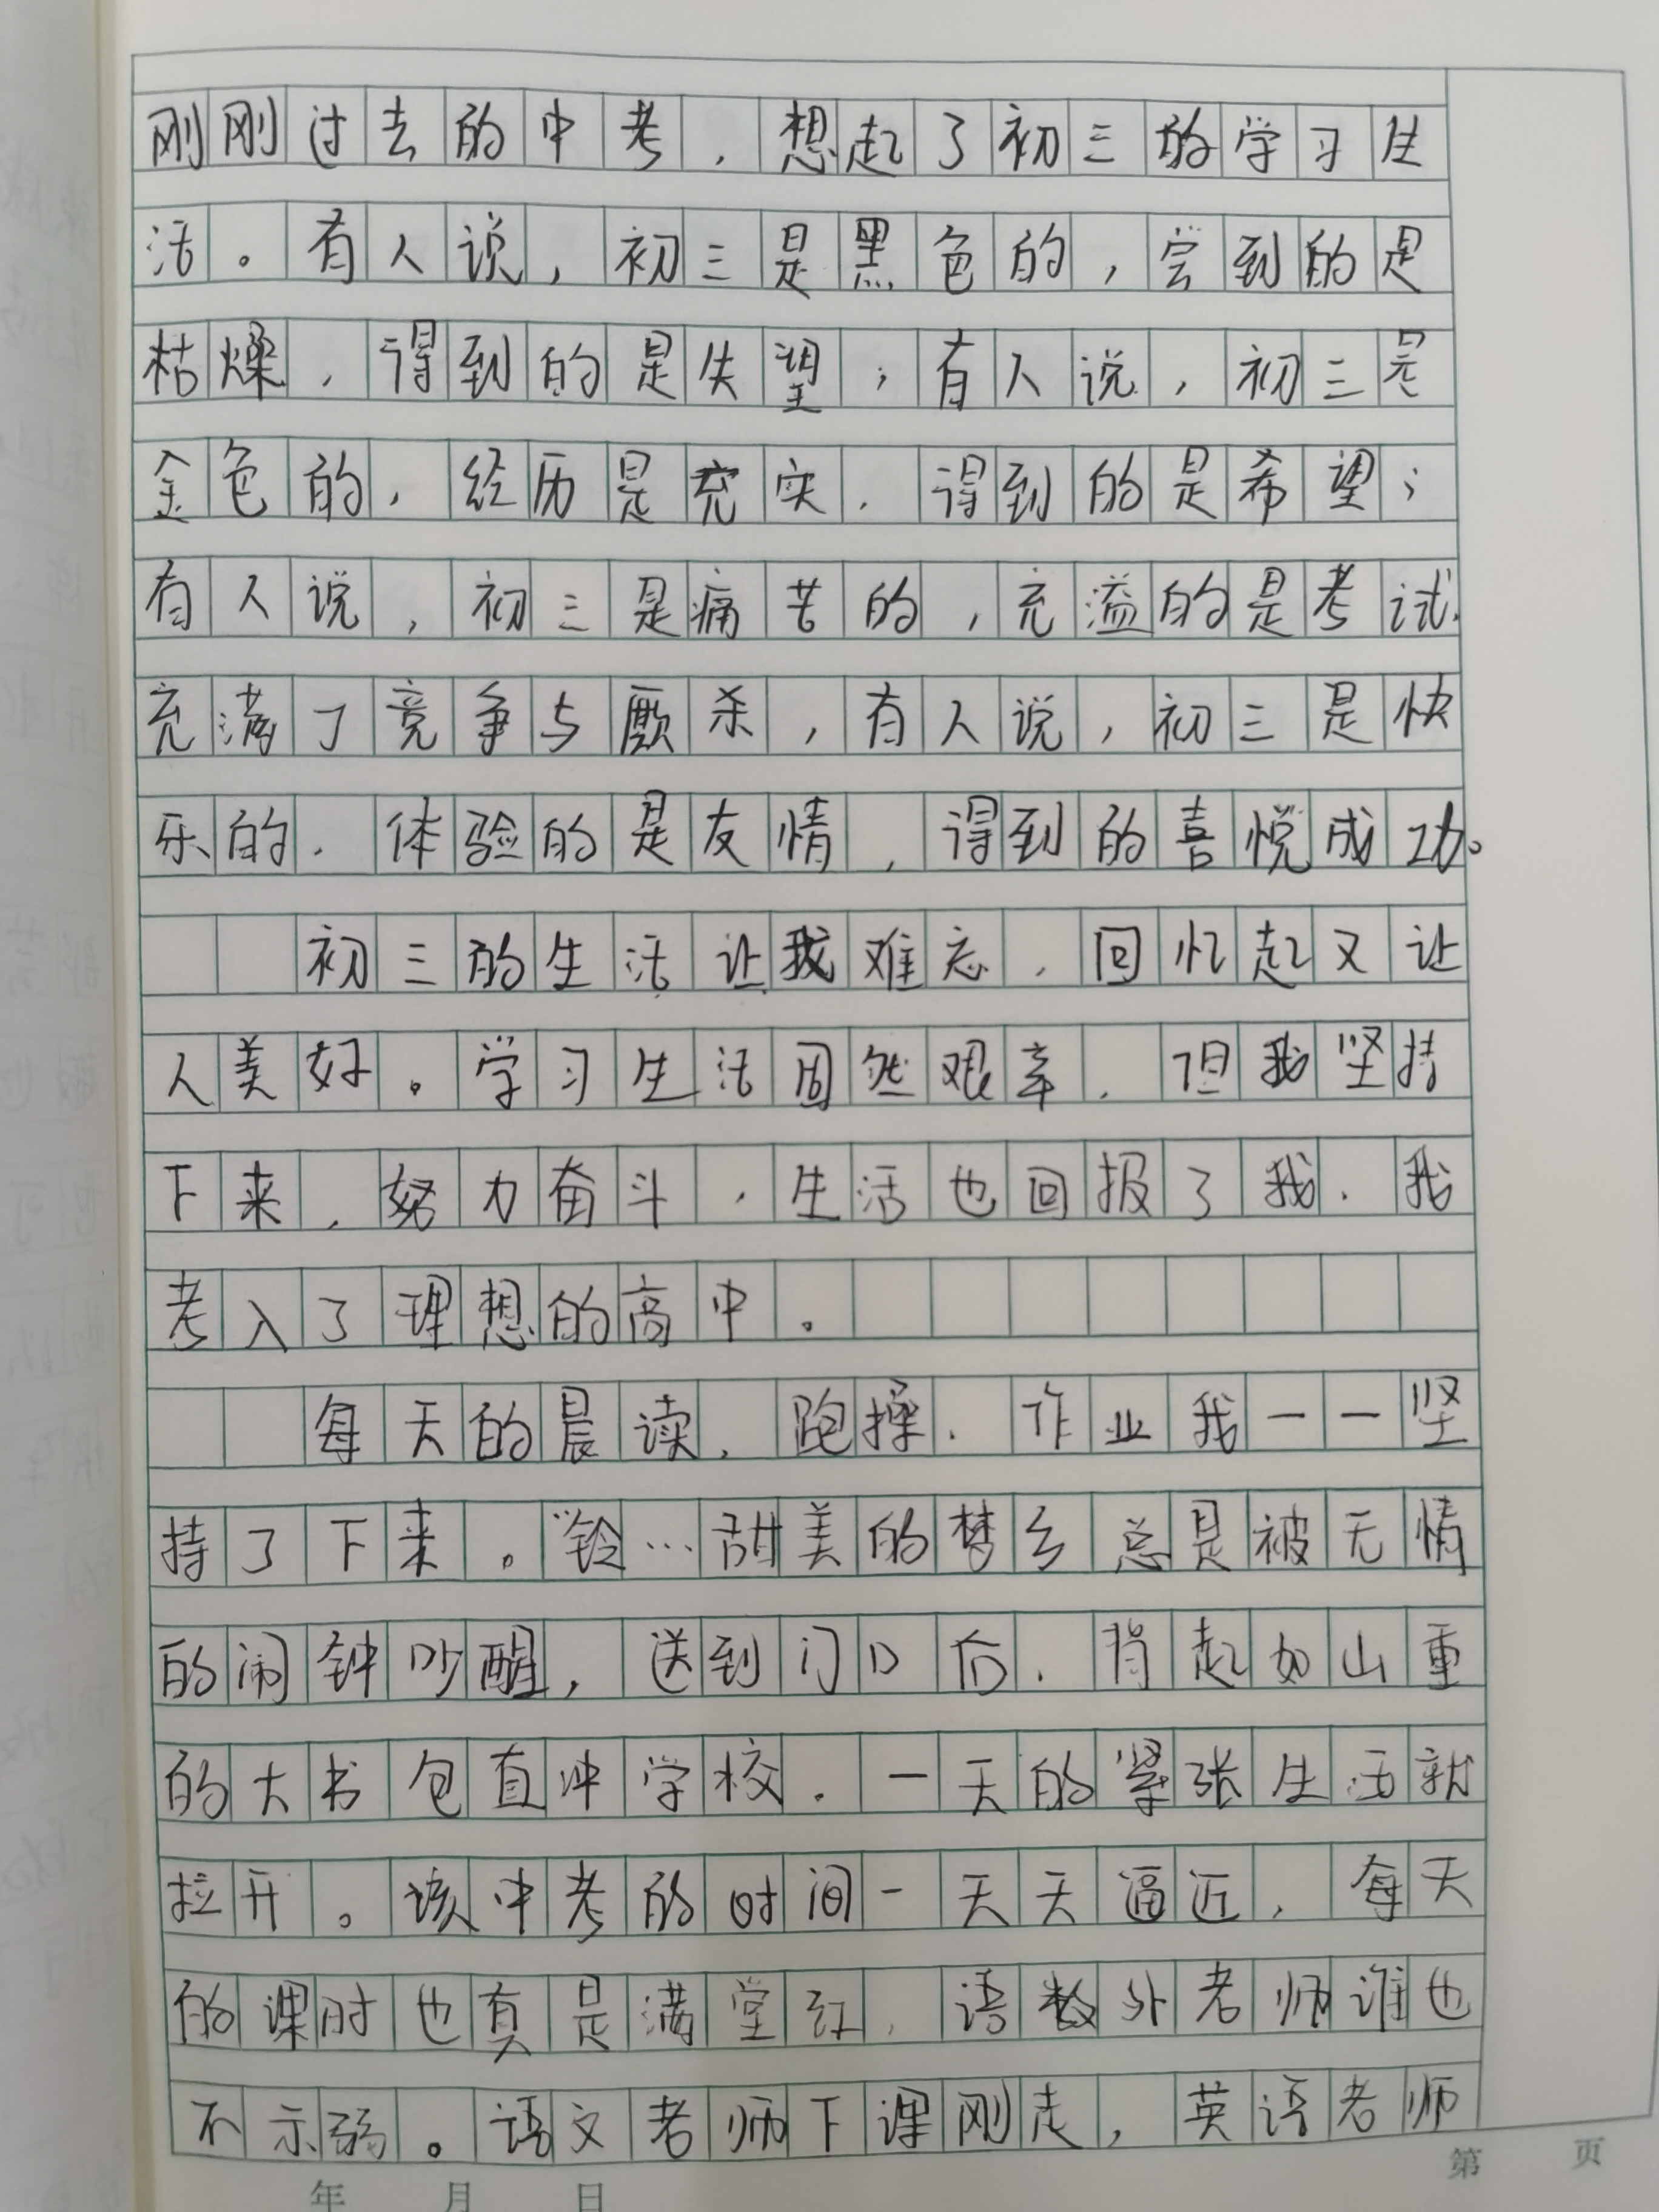 刚刚过去的中考，想起了初三的学习生
活。有人说，初三是黑色的，尝到的是
枯燥，得到的是失望；有人说，初三是
金色的，经历是充实，得到的是希望；
有人说，初三是痛苦的，充溢的是考试，
充满了竞争与厮杀，有人说，初三是快
乐的，体验的是友情，得到的喜悦成功。
初三的生活让我难忘，回忆起又让
人美好。学习生活固然艰辛，但我坚持
下来，努力奋斗，生活也回报了我，我
考入了理想的高中。
每天的晨读，跑操，作业我一一坚
持了下来。"铃…甜美的梦乡总是被无情
的闹钟吵醒，送到门口后，背起如山重
的大书包直冲学校．一天的紧张生活就
拉开。该中考的时间一天天逼近，每天
的课时也真是满堂红，语数外老师谁也
不示弱。语文老师下课刚走，英语老师
第 页
年 月 日